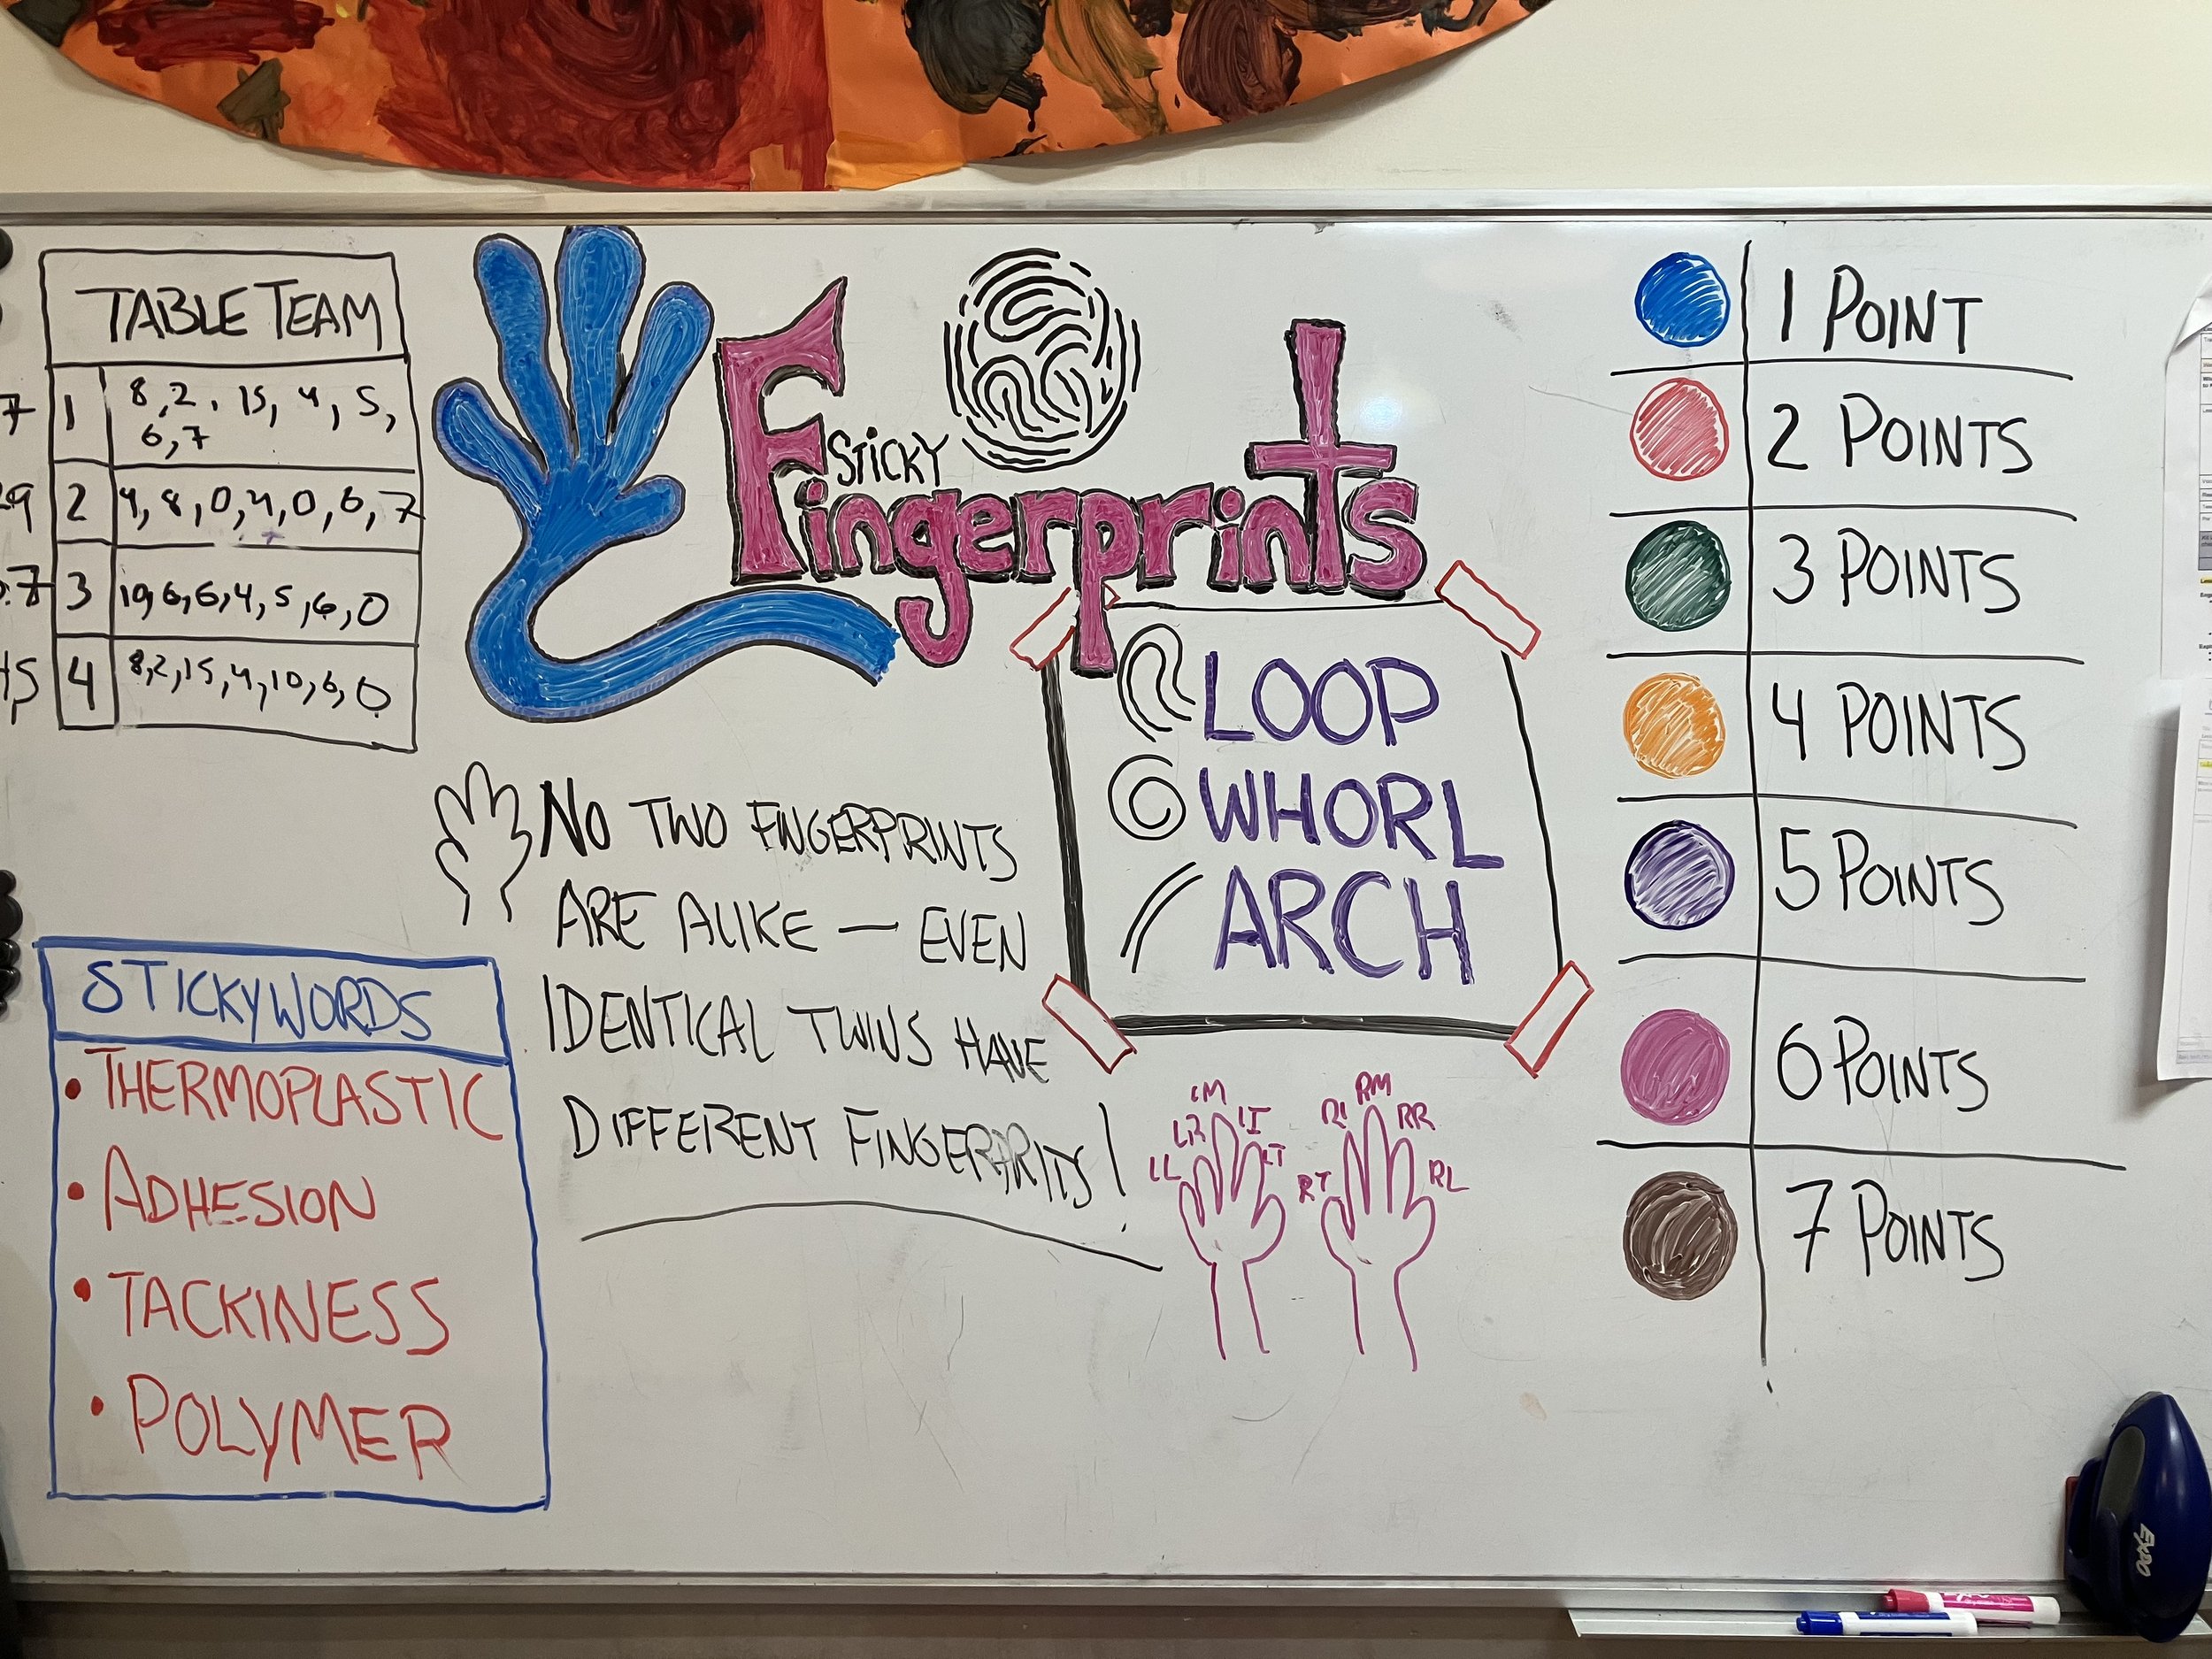 TABLE TEAM
7 1 8, 2, 15, 4, 5,
6, 7
29 2 4, 8, 0, 4, 0, 6, 7
.7 3 10, 6, 6, 4, 5, 6, 0
45 4 8, 2, 15, 4, 10, 6, 0
STICKY
Fingerprints
LOOP
WHORL
ARCH
NO TWO FINGERPRINTS
ARE ALIKE — EVEN
IDENTICAL TWINS HAVE
DIFFERENT
STICKY WORDS
• THERMOPLASTIC
• ADHESION
• TACKINESS
• POLYMER
LL LR LI LT
RT RI RM RR RL
1 POINT
2 POINTS
3 POINTS
4 POINTS
5 POINTS
6 POINTS
7 POINTS
EXPO